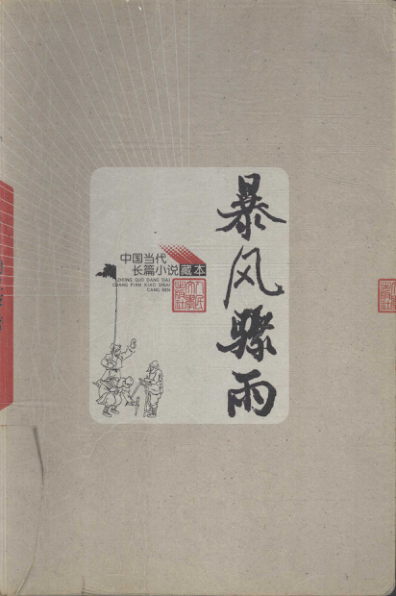 中国当代
长篇小说 藏本
ZHONG GUO DANG DAI
CHANG PIAN XIAO SHUO
CANG BEN
暴风骤雨